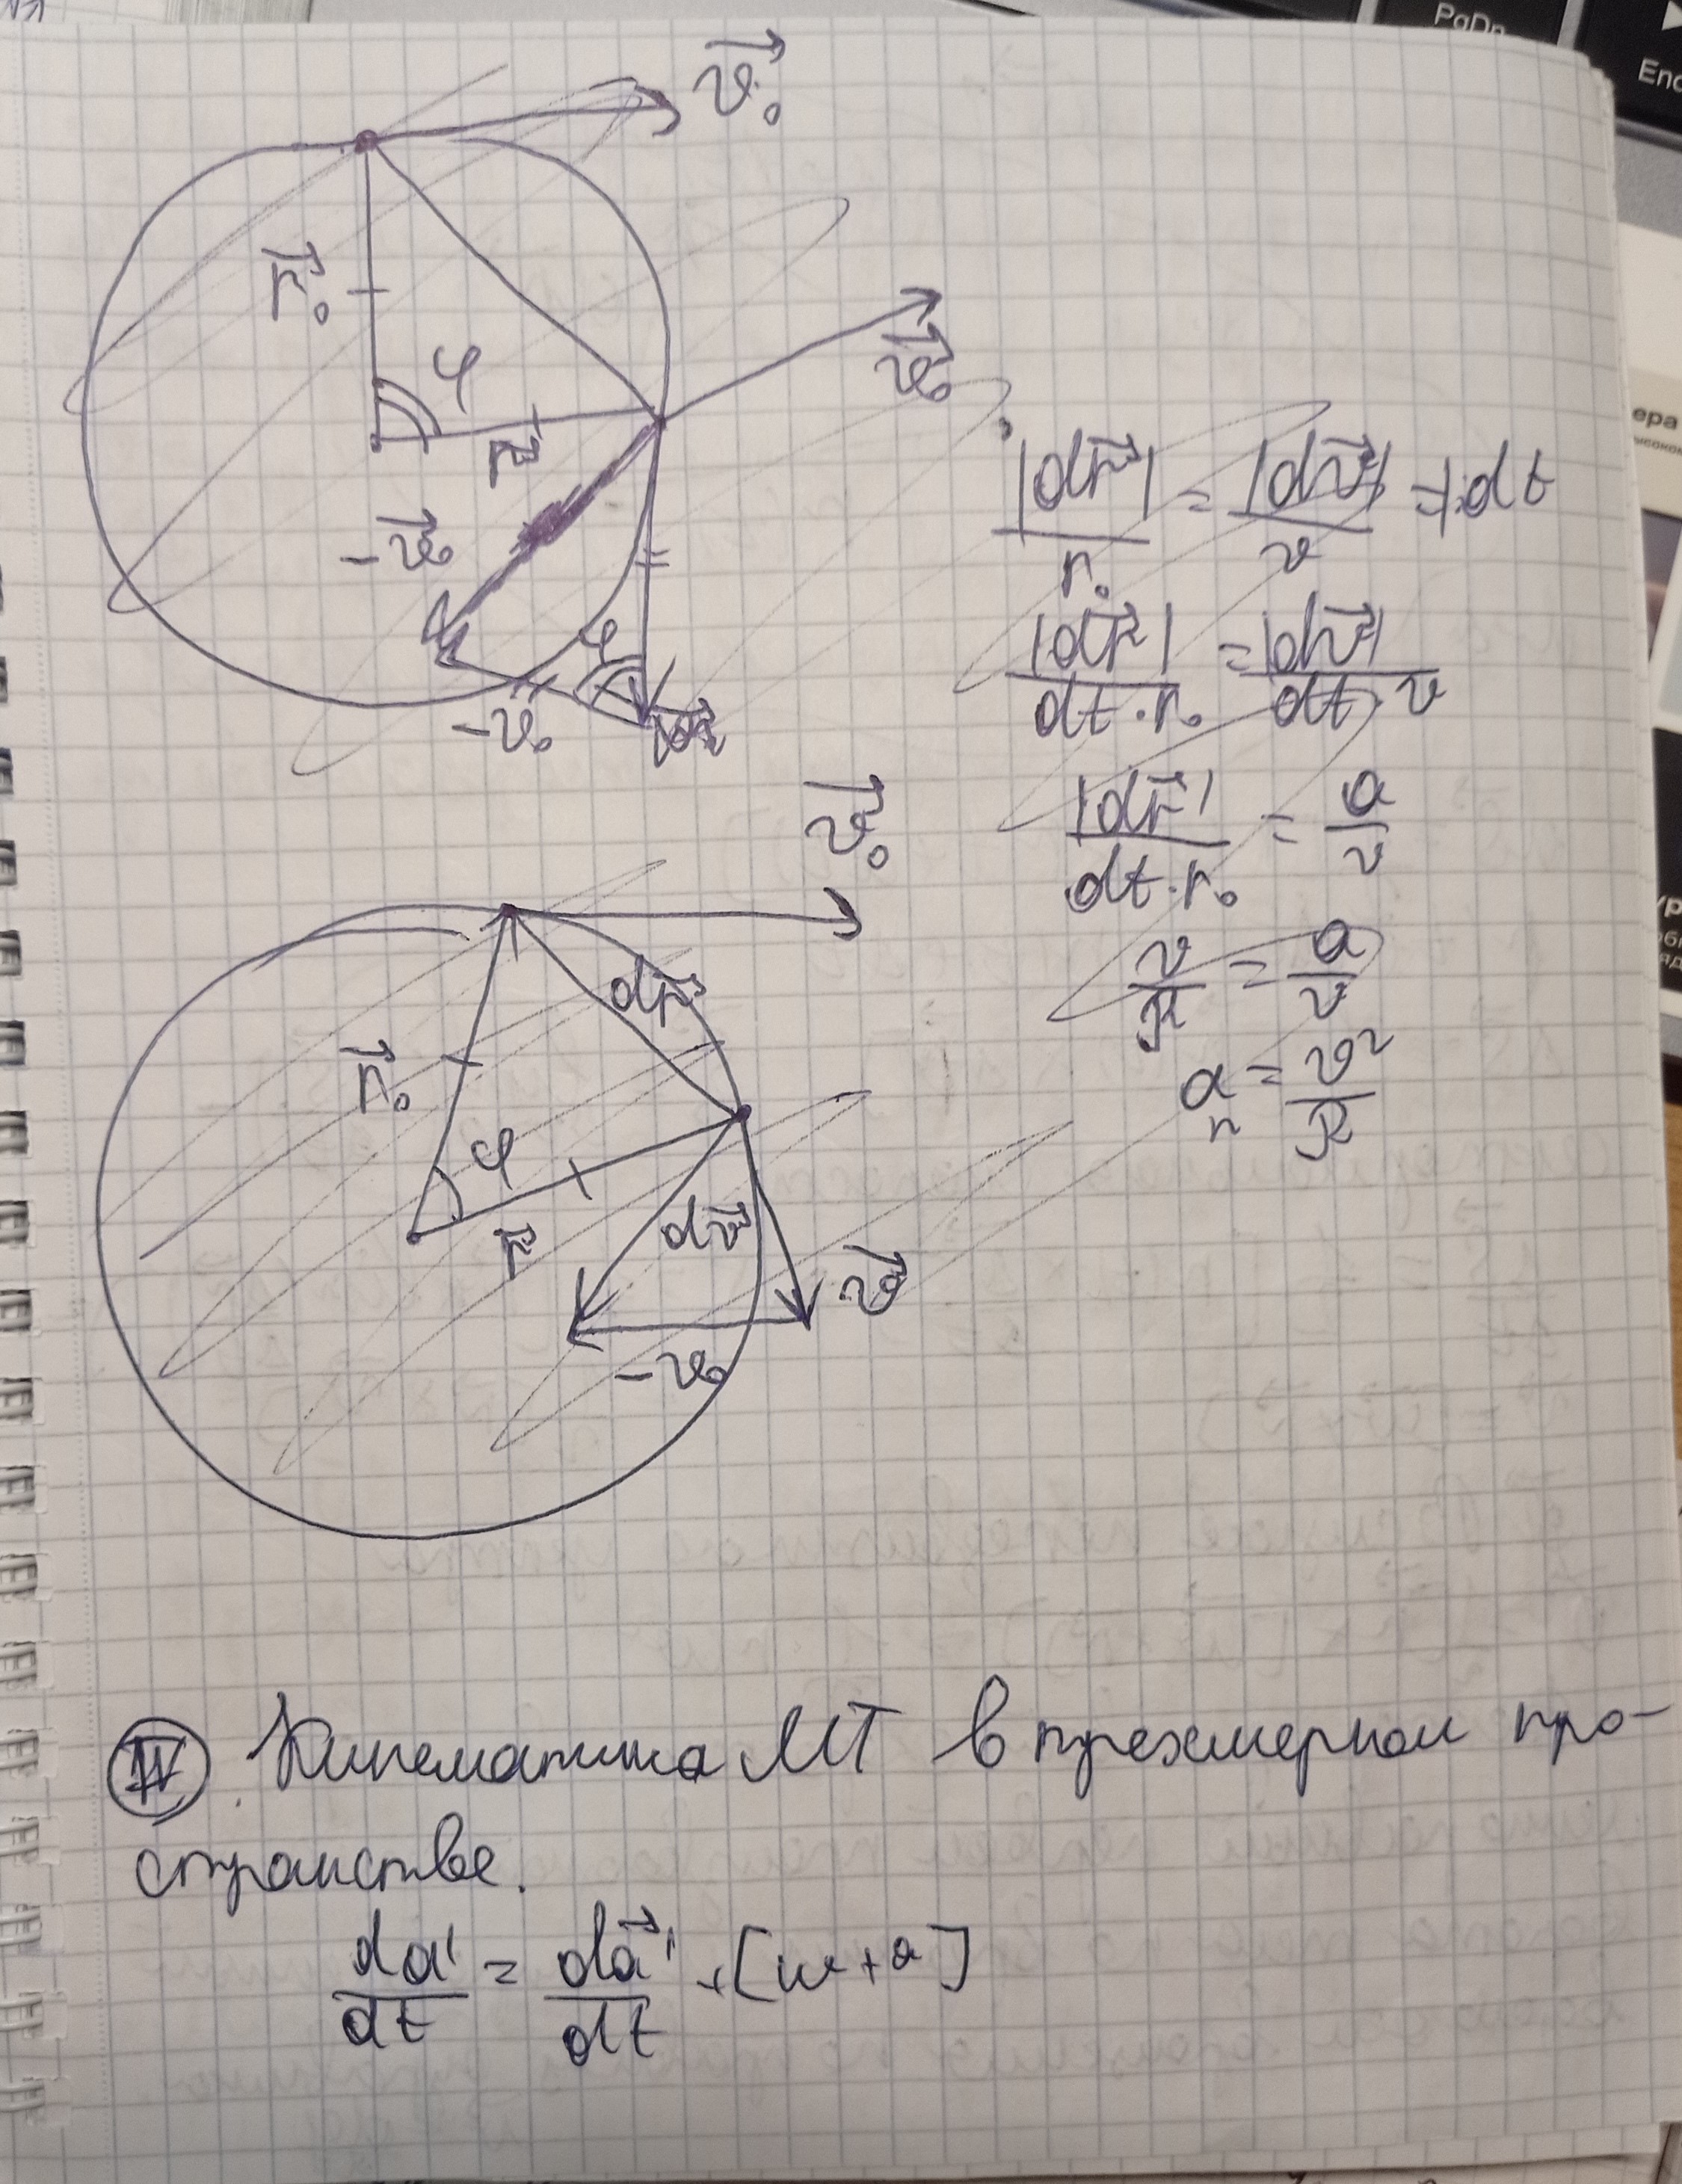 PgDn
End
v⃗₀
r⃗₀
φ
r⃗
v⃗₀
-v⃗₀
φ
-v₀
|dr⃗|/r₀ = |dv⃗|/v = | : dt
|dr⃗|/(dt·r₀) = |dv⃗|/(dt·v)
|dr⃗|/(dt·r₀) = a/v
v/R = a/v
aₙ = v²/R
v⃗₀
dr⃗
r⃗₀
φ
r⃗
dv⃗
v⃗
-v₀
IV Кинематика МТ в трехмерном про-
странстве.
da'/dt = da⃗'/dt + [w + a]
ера